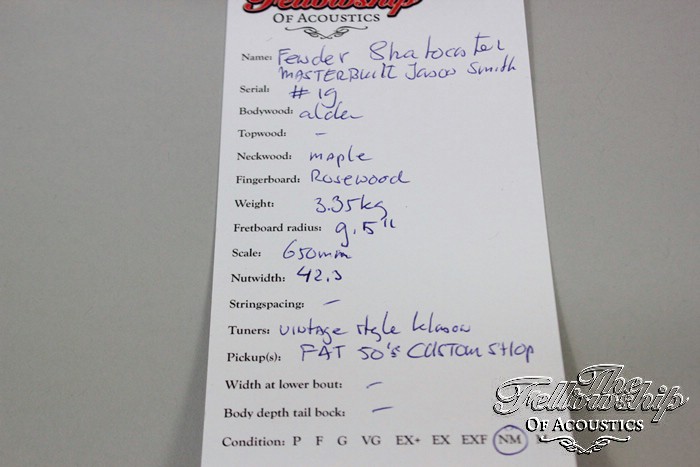 Fellowship
OF ACOUSTICS
Name: Fender Stratocaster
MASTERBUILT Jason Smith
Serial: #19
Bodywood: alder
Topwood: –
Neckwood: maple
Fingerboard: Rosewood
Weight: 3.35kg
Fretboard radius: 9.5"
Scale: 650mm
Nutwidth: 42.3
Stringspacing: –
Tuners: vintage style kluson
Pickup(s): FAT 50's CUSTOM SHOP
Width at lower bout: –
Body depth tail bock: –
Condition: P F G VG EX+ EX EXF NM
The
Fellowship
OF ACOUSTICS